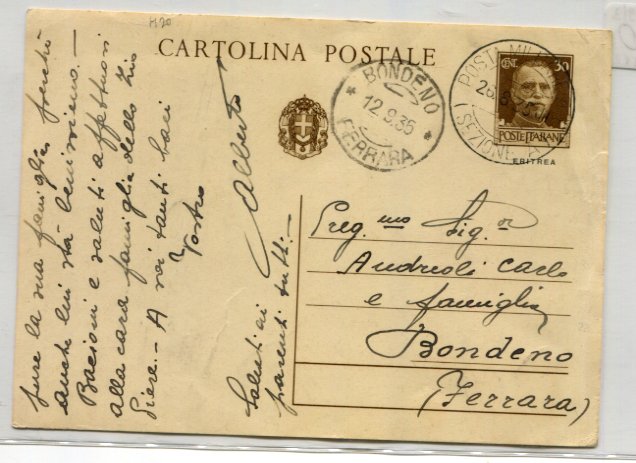 H20
CARTOLINA POSTALE
CENT. 30
POSTE ITALIANE
ERITREA
POSTA MIL
I SEZIONE A
BONDENO
12.9.35
FERRARA
Preg.mo Sig.r
Andreoli Carlo
e famiglia
Bondeno
(Ferrara)
pure la sua famiglia, perchè
anche lui stà benissimo.—
Bacioni e saluti affettuosi
alla cara famiglia dello Zio
Piere.— A voi tanti baci
Vostro
Alberto
Saluti ai
parenti tutti.—